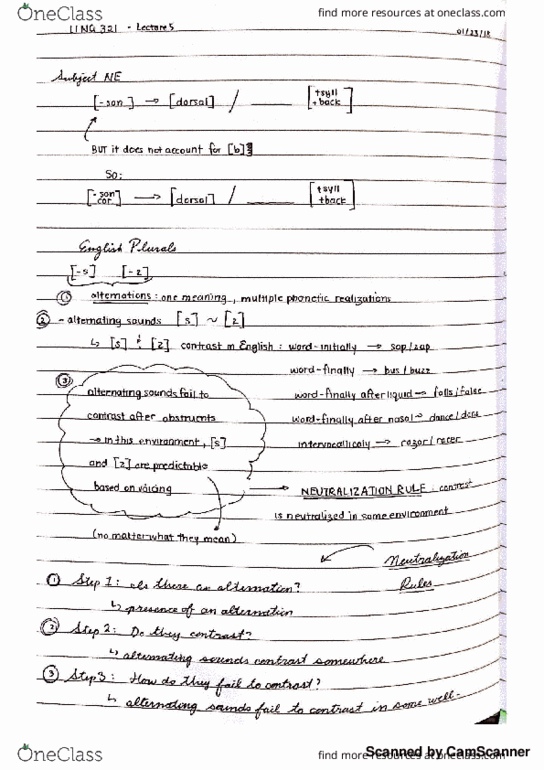 OneClass
find more resources at oneclass.com
LING 321 - Lecture 5
01/23/18
Subject NE
[-son] → [dorsal] / ____ [+syll +back]
BUT it does not account for [b]
So:
[-son cor] → [dorsal] / ____ [+syll +back]
English Plurals
[-s] [-z]
① alternations: one meaning, multiple phonetic realizations
② - alternating sounds [s] ~ [z]
↳ [s] & [z] contrast in English: word-initially → sap/zap
word-finally → bus/buzz
③
alternating sounds fail to
word-finally after liquid → falls/false
contrast after obstruents
word-finally after nasal → dance/
→ in this environment, [s]
intervocalically → razor/racer
and [z] are predictable
based on voicing
→ NEUTRALIZATION RULE: contrast
is neutralized in some environment
(no matter what they mean)
Neutralization
Rules
① Step 1: Is there an alternation?
↳ presence of an alternation
② Step 2: Do they contrast?
↳ alternating sounds contrast somewhere
③ Step 3: How do they fail to contrast?
↳ alternating sounds fail to contrast in some well-
OneClass
find more resources at oneclass.com
Scanned by CamScanner